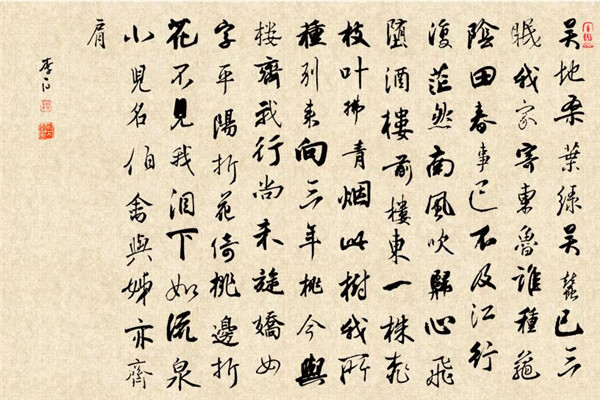 吴地桑葉綠吴蠶已三
眠我家寄東魯誰種龜
陰田春事已不及江行
復茫然南風吹歸心飛
墮酒樓前樓東一株桃
枝叶拂青烟此樹我所
種别来向三年桃今與
楼齊我行尚未旋嬌女
字平陽折花倚桃邊折
花不見我泪下如流泉
小兒名伯禽與姊亦齊
肩
李白